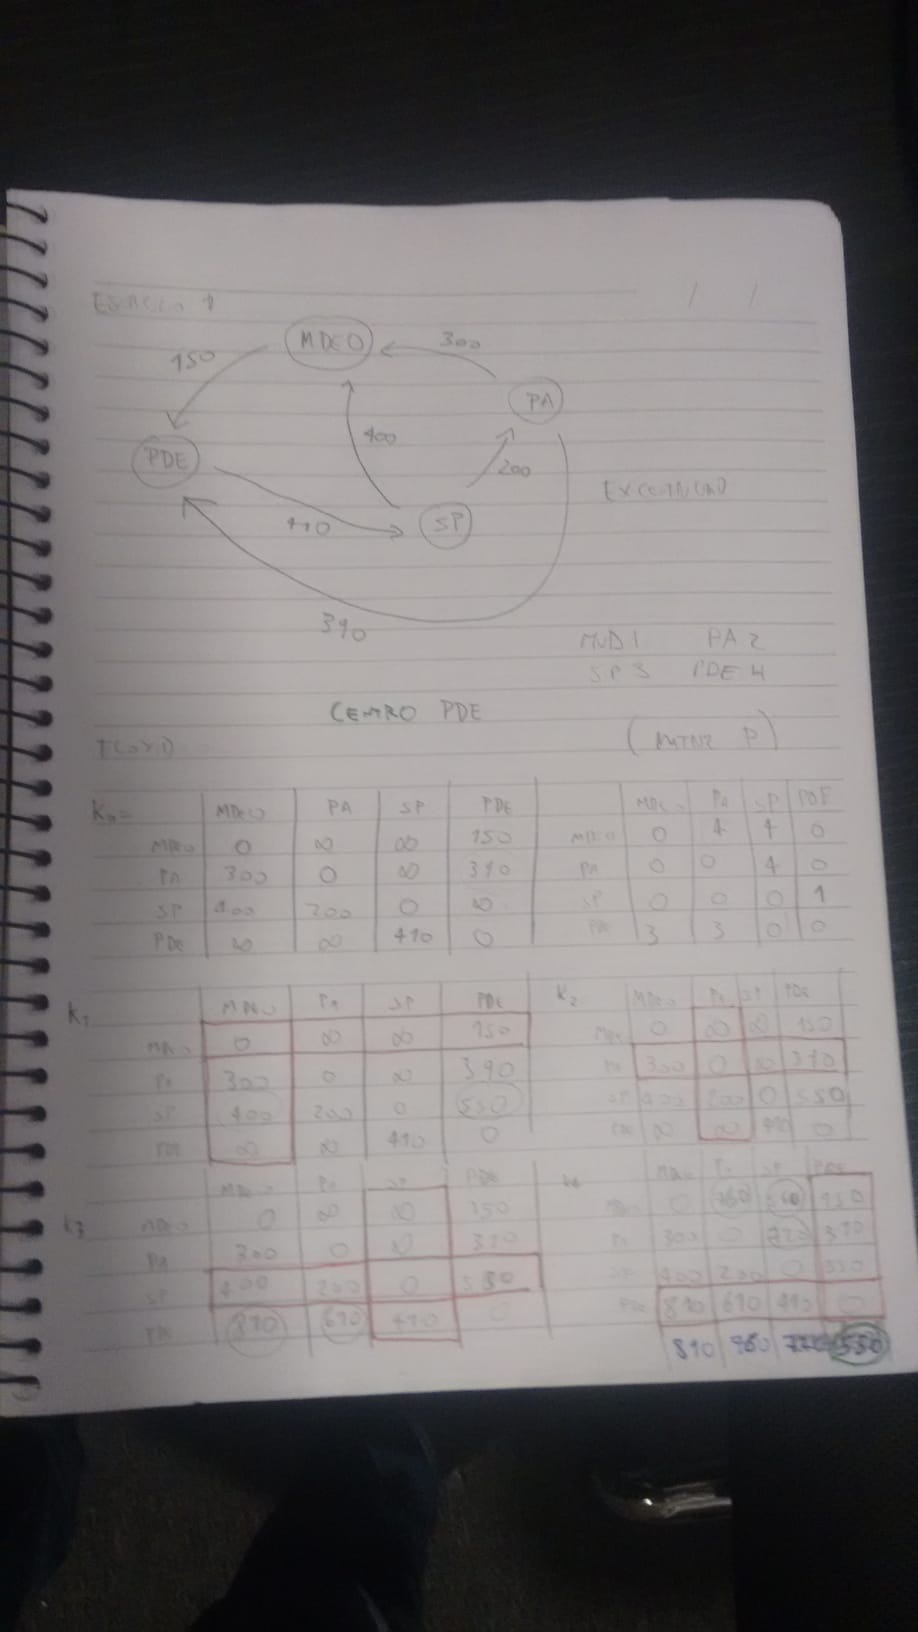 MDEO 300
150
PA
400
PDE
200
SP
410
390
MVD 1 PA 2
SP 3 PDE 4
CENTRO PDE
( MATRIZ P )
MDEO PA SP PDE
MDEO 0 ∞ ∞ 150
PA 300 0 ∞ 390
SP 400 200 0 ∞
PDE ∞ ∞ 410 0
MDEO PA SP PDE
MDEO 0 4 4 0
PA 0 0 4 0
SP 0 0 0 1
PDE 3 3 0 0
K1 MDEO PA SP PDE
MDEO 0 ∞ ∞ 150
PA 300 0 ∞ 390
SP 400 200 0 550
PDE ∞ ∞ 410 0
K2 MDEO PA SP PDE
0 ∞ ∞ 150
PA 300 0 ∞ 390
SP 400 200 0 550
PDE ∞ ∞ 410 0
K3 MDEO PA SP PDE
MDEO 0 ∞ ∞ 150
PA 300 0 ∞ 390
SP 400 200 0 550
810 610 410 0
0 760 560 150
300 0 390
400 200 0 550
PDE 810 610 410 0
810 550